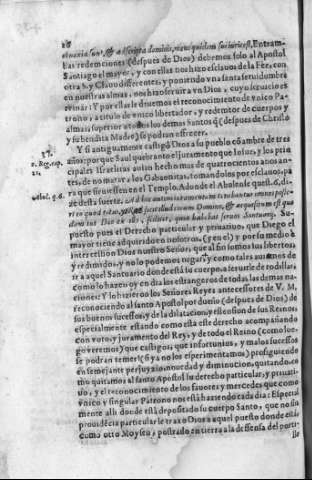 26
Entram-
bas redemciones (despues de Dios) debemos solo al Apostol
Santiago el mayor, y con ellas nos hizo esclavos de la Fee, con
diferentes, y poniendo vna santa seruidumbre
en nuestras almas, nos hizo seruir a vn Dios, cuyo seruicio es
reinar: Y por ellas le deuemos el reconocimiento de vnico Pa-
trono, a titulo de vnico libertador, y redemtor de cuerpos y
almas, superior a todos los demas Santos q̃ (despues de Christo
y su bendita Madre) se podran ofrecer.
Y si antiguamente castigó Dios a su pueblo cõ ambre de tres
años: por que Saul quebranto el juramento que Iosue, y los prin-
cipales Israelitas auian hecho mas de quatrocientos años an-
tes, de no matar a los Gabaonitas, tomandolos por esclavos, pa-
ra que siruiessen en el Templo. Adonde el Abulense quest. 6, di-
ze desta suerte.
2. Reg. cap.
21.
Abul. q. 6.
Su-
puesto pues el Derecho particular y priuatiuo, que Diego el
mayor tiene adquirido en nosotros, (y en el) y por su medio e
intercession Dios nuestro Señor, que al fin somos sus libertos
y redimidos, y no lo podemos negar, y como tales auemos de
ir a aquel Santuario donde está su cuerpo, a seruirle de rodillas,
como lo hazen oy en dia los estrangeros de todas las demas na-
ciones: Y lo hizieron los Señores Reyes antecessores de V. M.
reconociendo al santo Apostol por dueño (despues de Dios) de
sus buenos sucessos, y de la dilatacion, y estension de sus Reinos:
especialmente estando como esta este derecho acompañando
con voto, y juramento del Rey, y de todo el Reino (como lue-
go veremos) que castigos, que infortunios, y malos sucessos
se podran temer (si ya no los esperimentamos) prosiguiendo
en semejante perjuyzio, nouedad y diminucion, quitando, co
mo quitamos al santo Apostol su derecho particular, y priuati-
uo, y el reconocimiento de los fauores, y mercedes que como
vnico y singular Patrono nos está haziendo cada dia: Especial
mente alli donde està depositado su cuerpo Santo, que no sin
prouidẽcia particular le traxo Dios a aquel puesto donde està
como otro Moysen, postrado en tierra a la defensa del porti-
llo